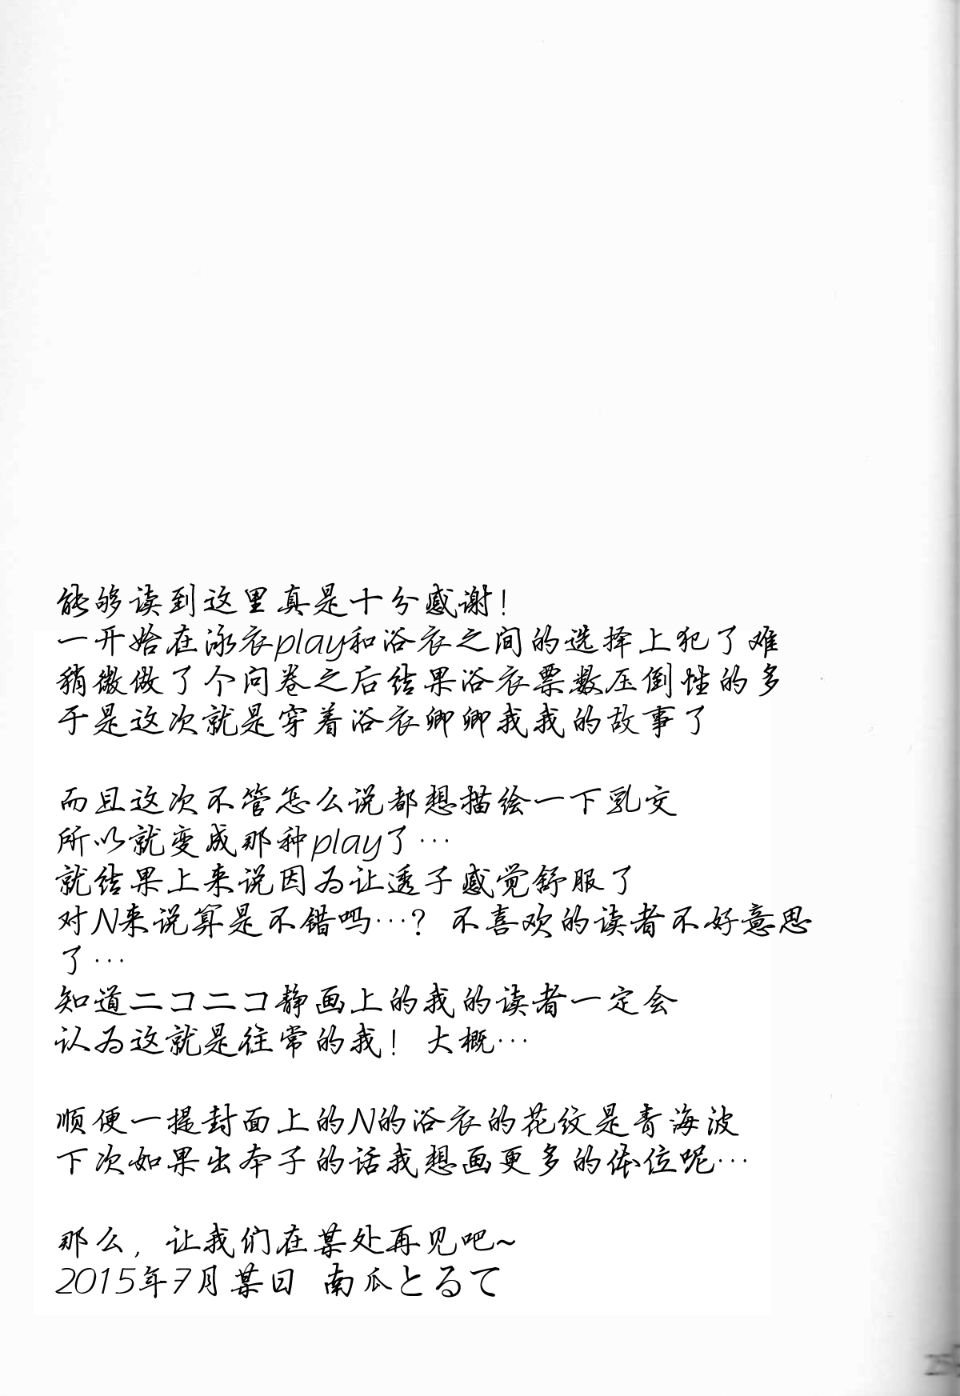 能够读到这里真是十分感谢！
一开始在泳衣play和浴衣之间的选择上犯了难
稍微做了个问卷之后结果浴衣票数压倒性的多
于是这次就是穿着浴衣卿卿我我的故事了
而且这次不管怎么说都想描绘一下乳交
所以就变成那种play了…
就结果上来说因为让透子感觉舒服了
对N来说算是不错吗…？不喜欢的读者不好意思
了…
知道ニコニコ静画上的我的读者一定会
认为这就是往常的我！大概…
顺便一提封面上的N的浴衣的花纹是青海波
下次如果出本子的话我想画更多的体位呢…
那么，让我们在某处再见吧~
2015年7月某日 南瓜とるて
25